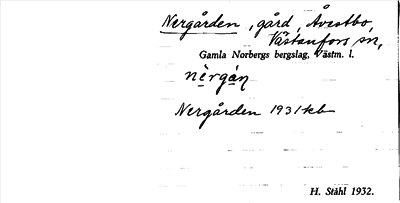 Nergården, gård, Åvestbo,
Västanfors sn,
Gamla Norbergs bergslag, Västm. l.
nè̱rgá̱n
Nergården 1931 kb
H. Ståhl 1932.